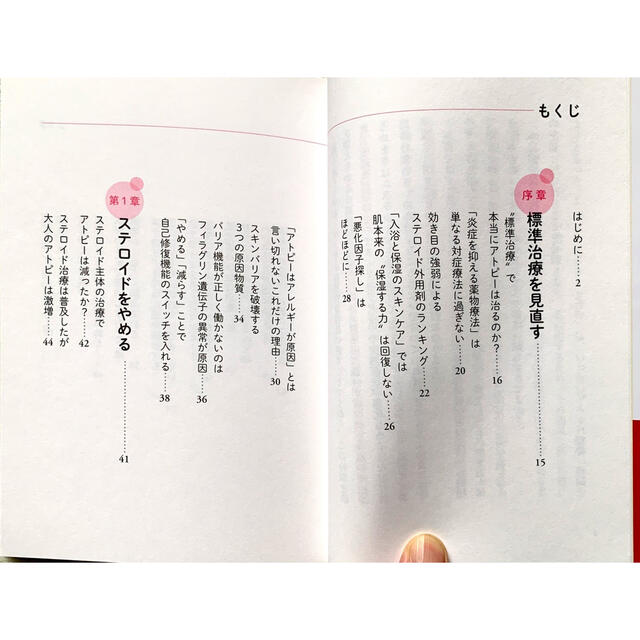 もくじ
はじめに……2
序章
標準治療を見直す……15
“標準治療”で
本当にアトピーは治るのか?……16
「炎症を抑える薬物療法」は
単なる対症療法に過ぎない……20
効き目の強弱による
ステロイド外用剤のランキング……22
「入浴と保湿のスキンケア」では
肌本来の“保湿する力”は回復しない……26
「悪化因子探し」は
ほどほどに……28
「アトピーはアレルギーが原因」とは
言い切れないこれだけの理由……30
スキンバリアを破壊する
3つの原因物質……34
バリア機能が正しく働かないのは
フィラグリン遺伝子の異常が原因……36
「やめる」「減らす」ことで
自己修復機能のスイッチを入れる……38
第1章
ステロイドをやめる……41
ステロイド主体の治療で
アトピーは減ったか?……42
ステロイド治療は普及したが
大人のアトピーは激増……44